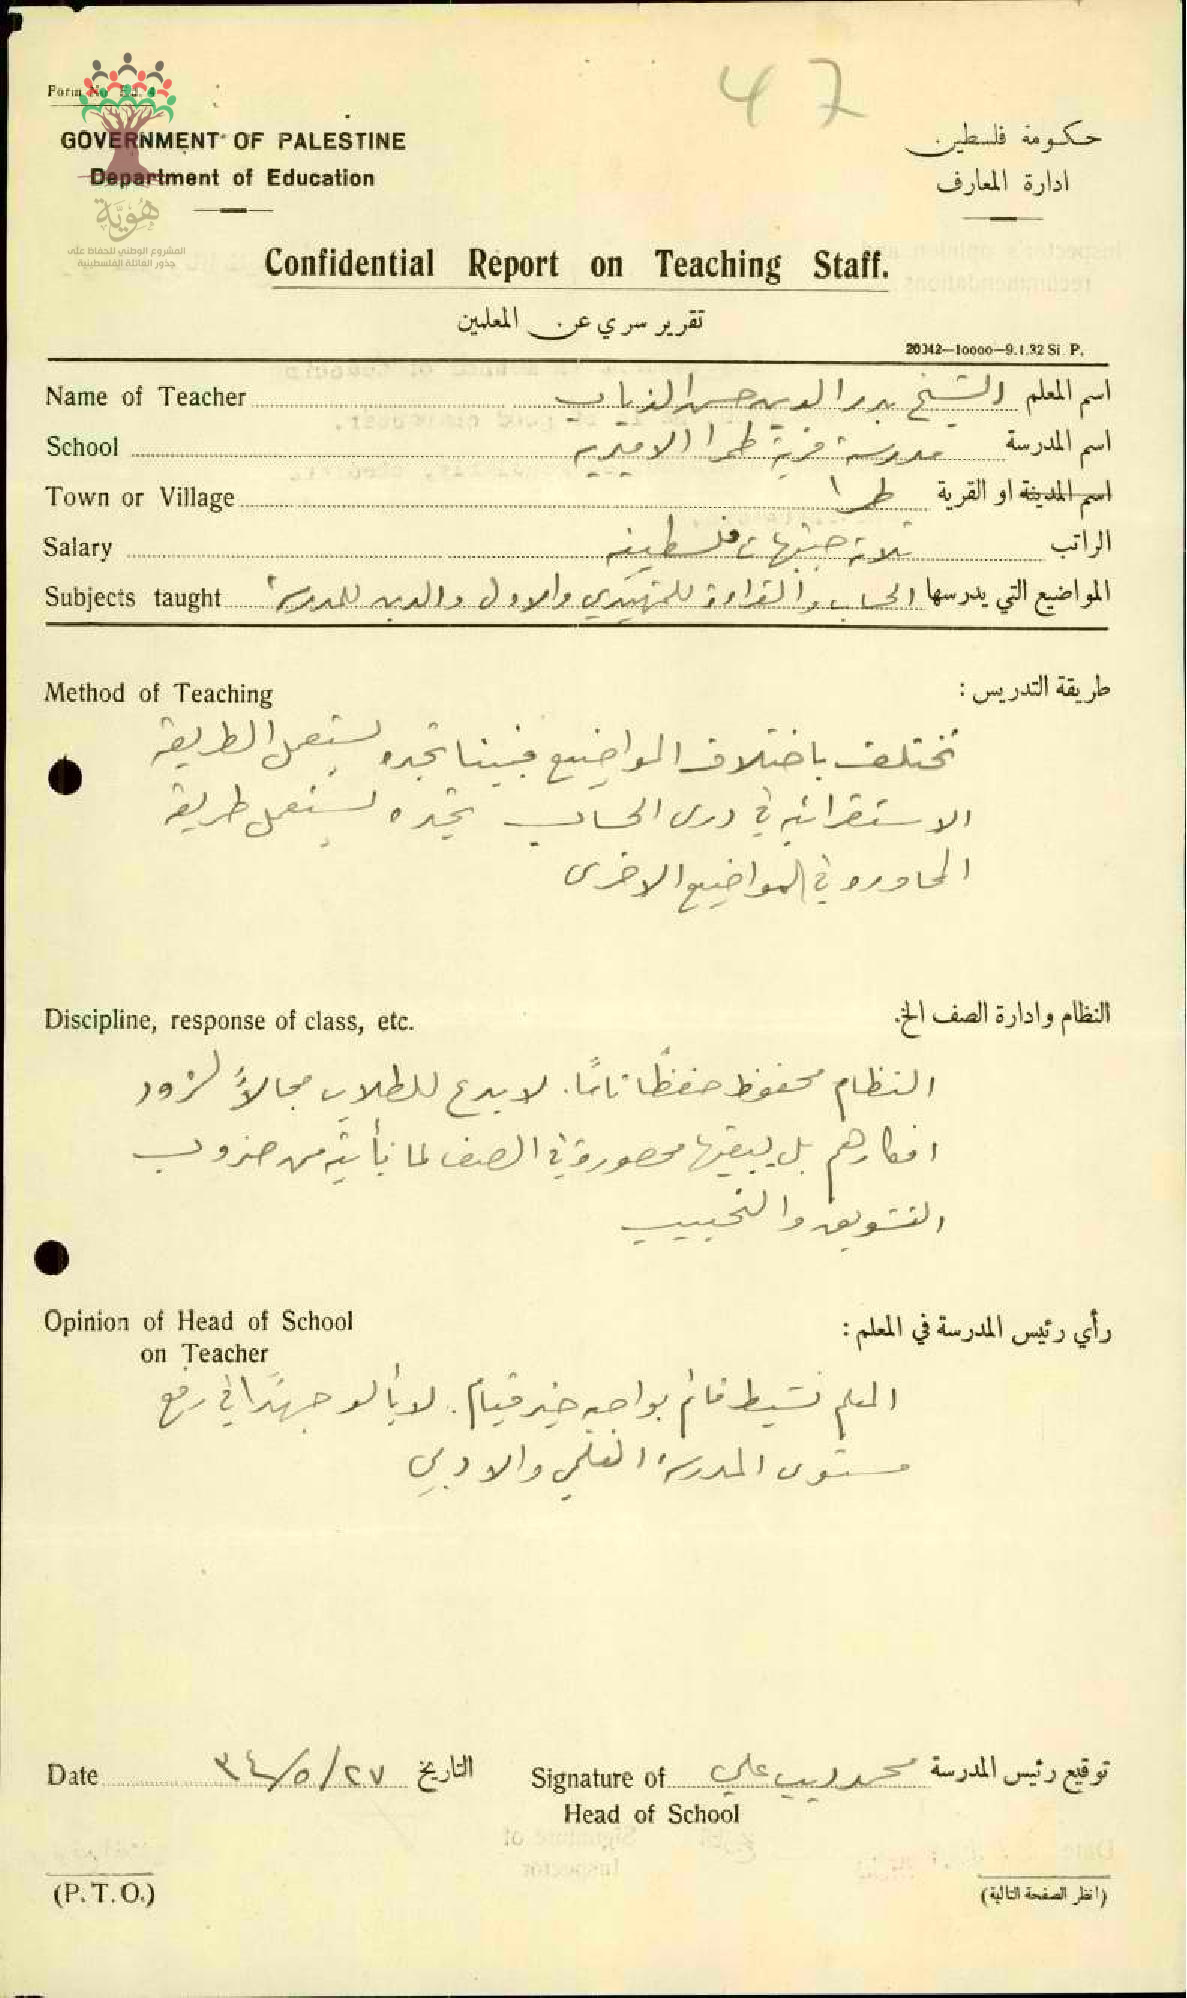 47
Form No Ed. 4
GOVERNMENT OF PALESTINE
Department of Education
حكومة فلسطين
ادارة المعارف
هُوِيَّة
المشروع الوطني للحفاظ على
جذور العائلة الفلسطينية
Confidential Report on Teaching Staff.
تقرير سري عن المعلمين
20042—10000—9.1.32 Si. P.
Name of Teacher الشيخ بدر الدين حسن الذياب اسم المعلم
School مدرسة قرية طمرا الاميرية اسم المدرسة
Town or Village طمرا اسم المدينة او القرية
Salary ثلاثة جنيهات فلسطينية الراتب
Subjects taught الحساب والقراءة للتمهيدي والاول والدين للمدرسة المواضيع التي يدرسها
Method of Teaching طريقة التدريس :
تختلف باختلاف المواضيع فبينا تجده يستعمل الطريقة
الاستقرائية في درس الحساب تجده يستعمل طريقة
المحاورة في المواضيع الاخرى
Discipline, response of class, etc. النظام وادارة الصف الخ.
النظام محفوظ حفظًا تامًا. لا يدع للطلاب مجالاً لشرود
افكارهم بل يبقيها محصورة في الصف لما يأتيه من ضروب
التشويق والتحبيب
Opinion of Head of School رأي رئيس المدرسة في المعلم :
on Teacher
المعلم نشيط قائم بواجبه خير قيام. لا يألو جهدًا في رفع
مستوى المدرسة العلمي والادبي
Date ٢٧/٥/٣٤ التاريخ Signature of محمد ديب علي توقيع رئيس المدرسة
Head of School
(P.T.O.) (انظر الصفحة التالية)